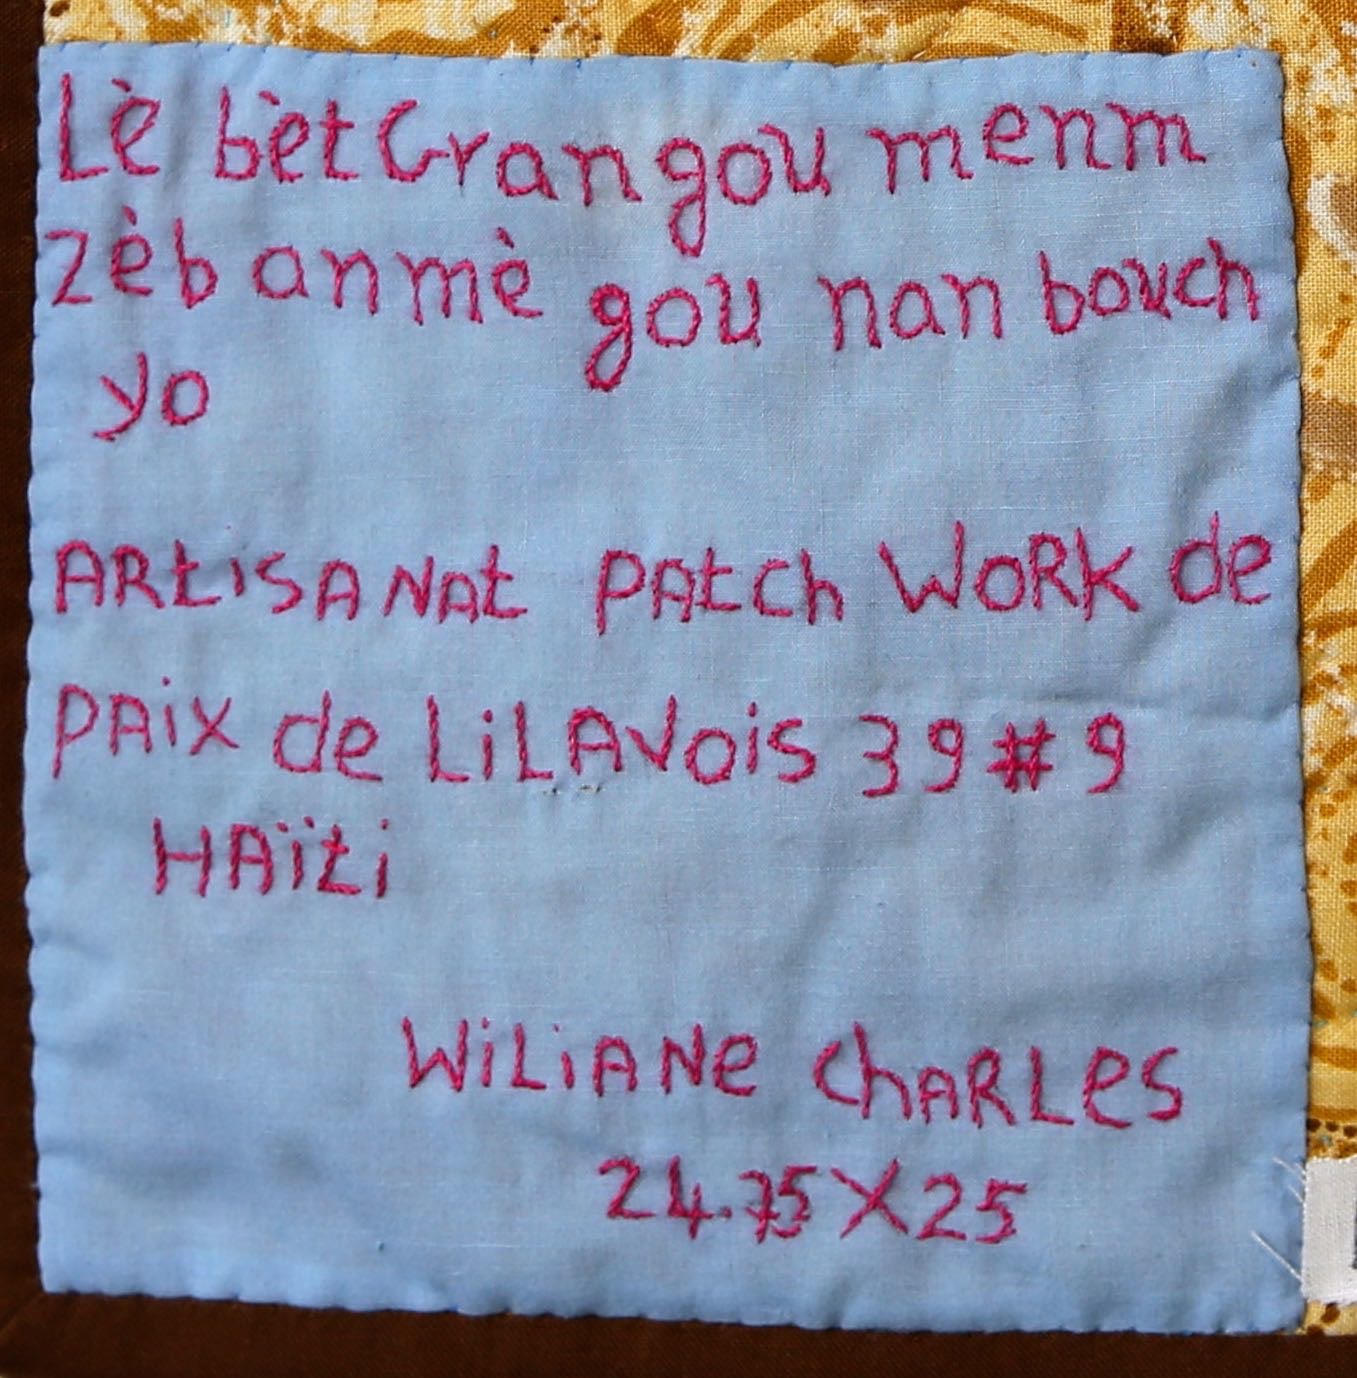 Lè bèt Grangou menm
zèb anmè gou nan bouch
yo
ARtiSANAt PAtch WORK de
PAix de LiLAVois 39 # 9
HAïti
WiLiANe chARLes
24.75 X 25